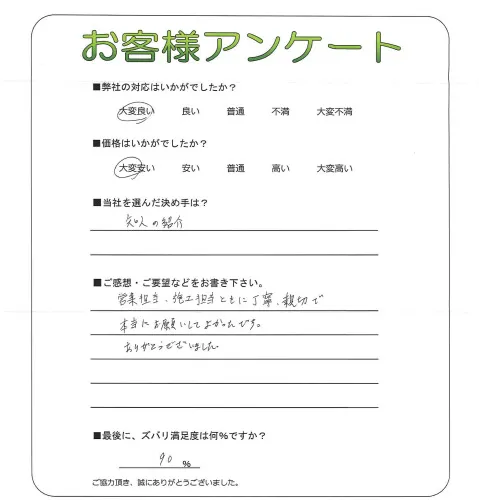 お客様アンケート
■弊社の対応はいかがでしたか？
大変良い 良い 普通 不満 大変不満
■価格はいかがでしたか？
大変安い 安い 普通 高い 大変高い
■当社を選んだ決め手は？
知人の紹介
■ご感想・ご要望などをお書き下さい。
営業担当、施工担当ともに丁寧、親切で
本当にお願いしてよかったです。
ありがとうございました
■最後に、ズバリ満足度は何%ですか？
90 %
ご協力頂き、誠にありがとうございました。